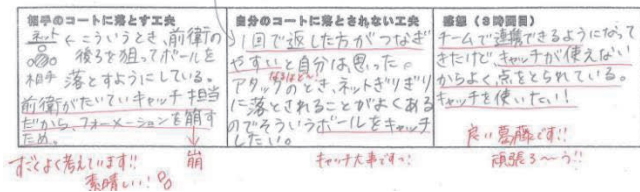 相手のコートに落とす工夫
ネット ←こういうとき、前衛の
後ろを狙ってボールを
相手 落とすようにしている。
前衛がたいていキャッチ担当
だから、フォーメーションを崩す
ため。
崩
すごくよく考えています!!
素晴しい!
自分のコートに落とされない工夫
1回で返した方がつなぎ
やすいと自分は思った。
なるほど!
アタックのとき、ネットぎりぎり
に落とされることがよくある
のでそういうボールをキャッチ
したい。
キャッチ大事ですっ!
感想(3時間目)
チームで連携できるようになって
きたけど、キャッチが使えない
からよく、点をとられている。
キャッチを使いたい!!
良い葛藤です!!
頑張ろ〜う!!